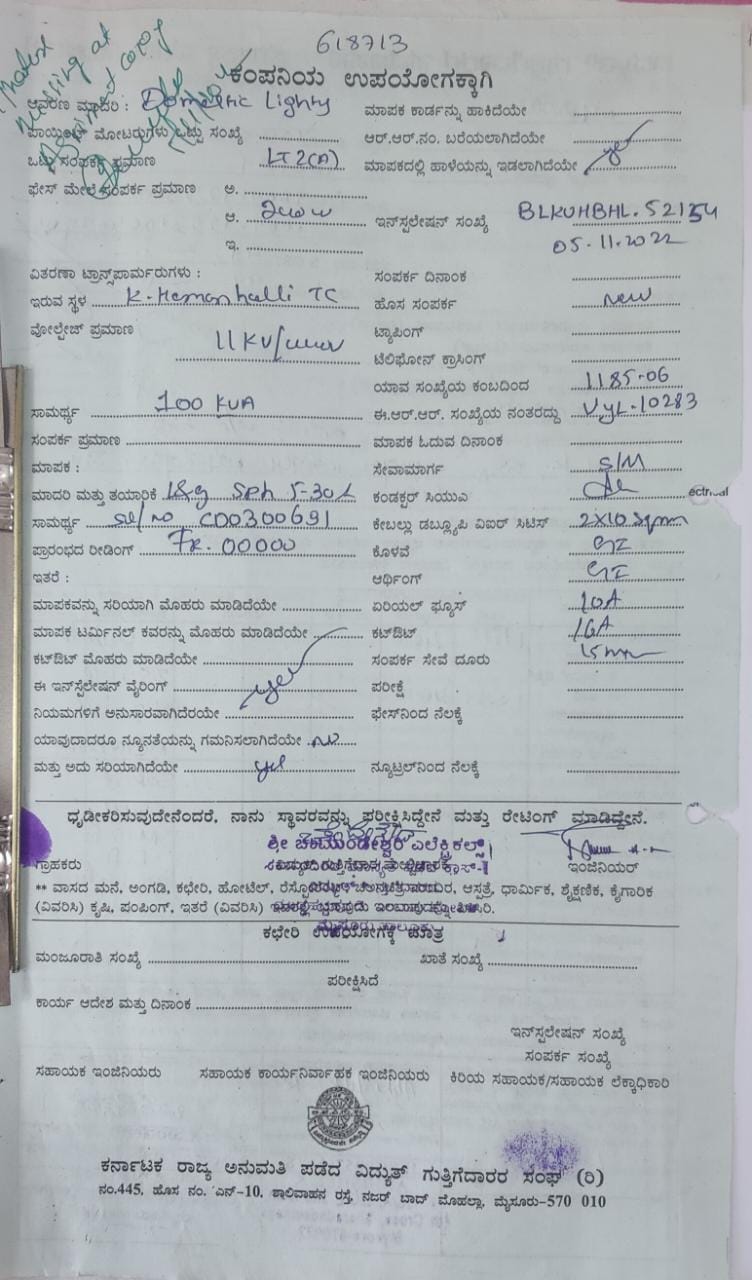 618713
ಕಂಪನಿಯ ಉಪಯೋಗಕ್ಕಾಗಿ
ಆವರಣ ಮಾದರಿ : Domestic Lighty ಮಾಪಕ ಕಾರ್ಡನ್ನು ಹಾಕಿದೆಯೇ
ಪಾಯಿಂಟ್ ಮೋಟರುಗಳು ಒಟ್ಟು ಸಂಖ್ಯೆ ಆರ್.ಆರ್.ನಂ. ಬರೆಯಲಾಗಿದೆಯೇ
ಒಟ್ಟು ಸಂಪರ್ಕ ಪ್ರಮಾಣ LT2(A) ಮಾಪಕದಲ್ಲಿ ಹಾಳೆಯನ್ನು ಇಡಲಾಗಿದೆಯೇ yes
ಫೇಸ್ ಮೇಲೆ ಸಂಪರ್ಕ ಪ್ರಮಾಣ ಅ.
ಆ. ಇನ್‌ಸ್ಪಲೇಷನ್ ಸಂಖ್ಯೆ BLKUHBHL.52154
ಇ. 05.11.2022
ವಿತರಣಾ ಟ್ರಾನ್ಸ್‌ಪಾರ್ಮರುಗಳು : ಸಂಪರ್ಕ ದಿನಾಂಕ
ಇರುವ ಸ್ಥಳ K.Hemanhalli TC ಹೊಸ ಸಂಪರ್ಕ new
ವೋಲ್ಟೇಜ್ ಪ್ರಮಾಣ 11KV/ ಟ್ಯಾಪಿಂಗ್
ಟೆಲಿಫೋನ್ ಕ್ರಾಸಿಂಗ್
ಯಾವ ಸಂಖ್ಯೆಯ ಕಂಬದಿಂದ 1185-06
ಸಾಮರ್ಥ್ಯ 100 KVA ಈ.ಆರ್.ಆರ್. ಸಂಖ್ಯೆಯ ನಂತರದ್ದು VyL.10283
ಸಂಪರ್ಕ ಪ್ರಮಾಣ ಮಾಪಕ ಓದುವ ದಿನಾಂಕ
ಮಾಪಕ : ಸೇವಾಮಾರ್ಗ S/M
ಮಾದರಿ ಮತ್ತು ತಯಾರಿಕೆ L&g Sph 5-30A ಕಂಡಕ್ಟರ್ ಸಿಯುಎ
ಸಾಮರ್ಥ್ಯ sl/no C00300691 ಕೇಬಲ್ಲು ಡಬ್ಲ್ಯೂಪಿ ವಿಐರ್ ಸಿಟಿಸ್ 2X10 Sqmm
ಪ್ರಾರಂಭದ ರೀಡಿಂಗ್ FR. 00000 ಕೊಳವೆ GI
ಇತರೆ : ಆರ್ಥಿಂಗ್ GI
ಮಾಪಕವನ್ನು ಸರಿಯಾಗಿ ಮೊಹರು ಮಾಡಿದೆಯೇ ಏರಿಯಲ್ ಫ್ಯೂಸ್ 10A
ಮಾಪಕ ಟರ್ಮಿನಲ್ ಕವರನ್ನು ಮೊಹರು ಮಾಡಿದೆಯೇ ಕಟ್‌ಔಟ್ 16A
ಕಟ್‌ಔಟ್ ಮೊಹರು ಮಾಡಿದೆಯೇ ಸಂಪರ್ಕ ಸೇವೆ ದೂರು
ಈ ಇನ್‌ಸ್ಪೆಲೇಷನ್ ವೈರಿಂಗ್ yes ಪರೀಕ್ಷೆ
ನಿಯಮಗಳಿಗೆ ಅನುಸಾರವಾಗಿದೆರಯೇ ಫೇಸ್‌ನಿಂದ ನೆಲಕ್ಕೆ
ಯಾವುದಾದರೂ ನ್ಯೂನತೆಯನ್ನು ಗಮನಿಸಲಾಗಿದೆಯೇ no
ಮತ್ತು ಅದು ಸರಿಯಾಗಿದೆಯೇ yes ನ್ಯೂಟ್ರಲ್‌ನಿಂದ ನೆಲಕ್ಕೆ
ಧೃಡೀಕರಿಸುವುದೇನೆಂದರೆ, ನಾನು ಸ್ಥಾವರವನ್ನು ಪರೀಕ್ಷಿಸಿದ್ದೇನೆ ಮತ್ತು ರೇಟಿಂಗ್ ಮಾಡಿದ್ದೇನೆ.
ಶ್ರೀ ಚಾಮುಂಡೇಶ್ವರಿ ಎಲೆಕ್ಟ್ರಿಕಲ್ಸ್
ಗ್ರಾಹಕರು ಇಂಜಿನಿಯರ್
** ವಾಸದ ಮನೆ, ಅಂಗಡಿ, ಕಛೇರಿ, ಹೋಟೆಲ್, ಆಸ್ಪತ್ರೆ, ಧಾರ್ಮಿಕ, ಶೈಕ್ಷಣಿಕ, ಕೈಗಾರಿಕ
(ವಿವರಿಸಿ) ಕೃಷಿ, ಪಂಪಿಂಗ್, ಇತರೆ (ವಿವರಿಸಿ)
ಕಛೇರಿ ಉಪಯೋಗಕ್ಕೆ ಮಾತ್ರ
ಮಂಜೂರಾತಿ ಸಂಖ್ಯೆ ಖಾತೆ ಸಂಖ್ಯೆ
ಪರೀಕ್ಷಿಸಿದೆ
ಕಾರ್ಯ ಆದೇಶ ಮತ್ತು ದಿನಾಂಕ
ಇನ್‌ಸ್ಪಲೇಷನ್ ಸಂಖ್ಯೆ
ಸಂಪರ್ಕ ಸಂಖ್ಯೆ
ಸಹಾಯಕ ಇಂಜಿನಿಯರು ಸಹಾಯಕ ಕಾರ್ಯನಿರ್ವಾಹಕ ಇಂಜಿನಿಯರು ಕಿರಿಯ ಸಹಾಯಕ/ಸಹಾಯಕ ಲೆಕ್ಕಾಧಿಕಾರಿ
ಕರ್ನಾಟಕ ರಾಜ್ಯ ಅನುಮತಿ ಪಡೆದ ವಿದ್ಯುತ್ ಗುತ್ತಿಗೆದಾರರ ಸಂಘ (ರಿ)
ನಂ.445, ಹೊಸ ನಂ. ಎನ್-10, ಶಾಲಿವಾಹನ ರಸ್ತೆ, ನಜರ್ ಬಾದ್ ಮೊಹಲ್ಲಾ, ಮೈಸೂರು-570 010